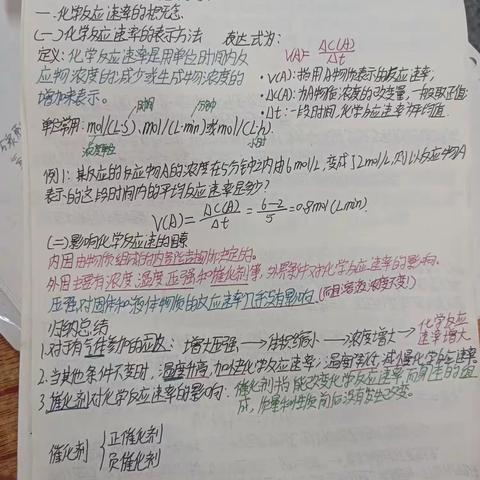 一.化学反应速率的概念.
(一)化学反应速率的表示方法 表达式为:
V(A)= ΔC(A)/Δt
定义:化学反应速率是用单位时间内反
应物浓度的减少或生成物浓度的
增加来表示。
·V(A):指用A物质表示的反应速率,
·ΔC(A):为A物质浓度的改变量,一般取正值;
·Δt:一段时间,化学反应速率为平均值.
分钟
单位常用:mol/(L·s)、mol/(L·min)或mol/(L·h).
浓度单位
小时
例1:某反应的反应物A的浓度在5分钟之内由6mol/L变成了2mol/L,则以反应物A
表示的这段时间内的平均反应速率是多少?
V(A)= ΔC(A)/Δt = 6-2/5 =0.8mol(L·min).
(二)影响化学反应速的因素
内因由物质组成的内容结构所决定的。
外因主要有浓度、温度、压强和催化剂等,外界条件对化学反应速率的影响。
压强对固体和液体物质的反应速率几乎没有影响.
归纳总结
1.对于有气体参加的反应:增大压强→体积缩小→浓度增大→化学反应
速率增大
2.当其他条件不变时,温度升高,加快化学反应速率;温度降低,减慢化学反应速率.
3.催化剂对化学反应速率的影响:催化剂能改变化学反应速率而自身的组
成,质量和性质前后没有发生改变。
催化剂 { 正催化剂
负催化剂